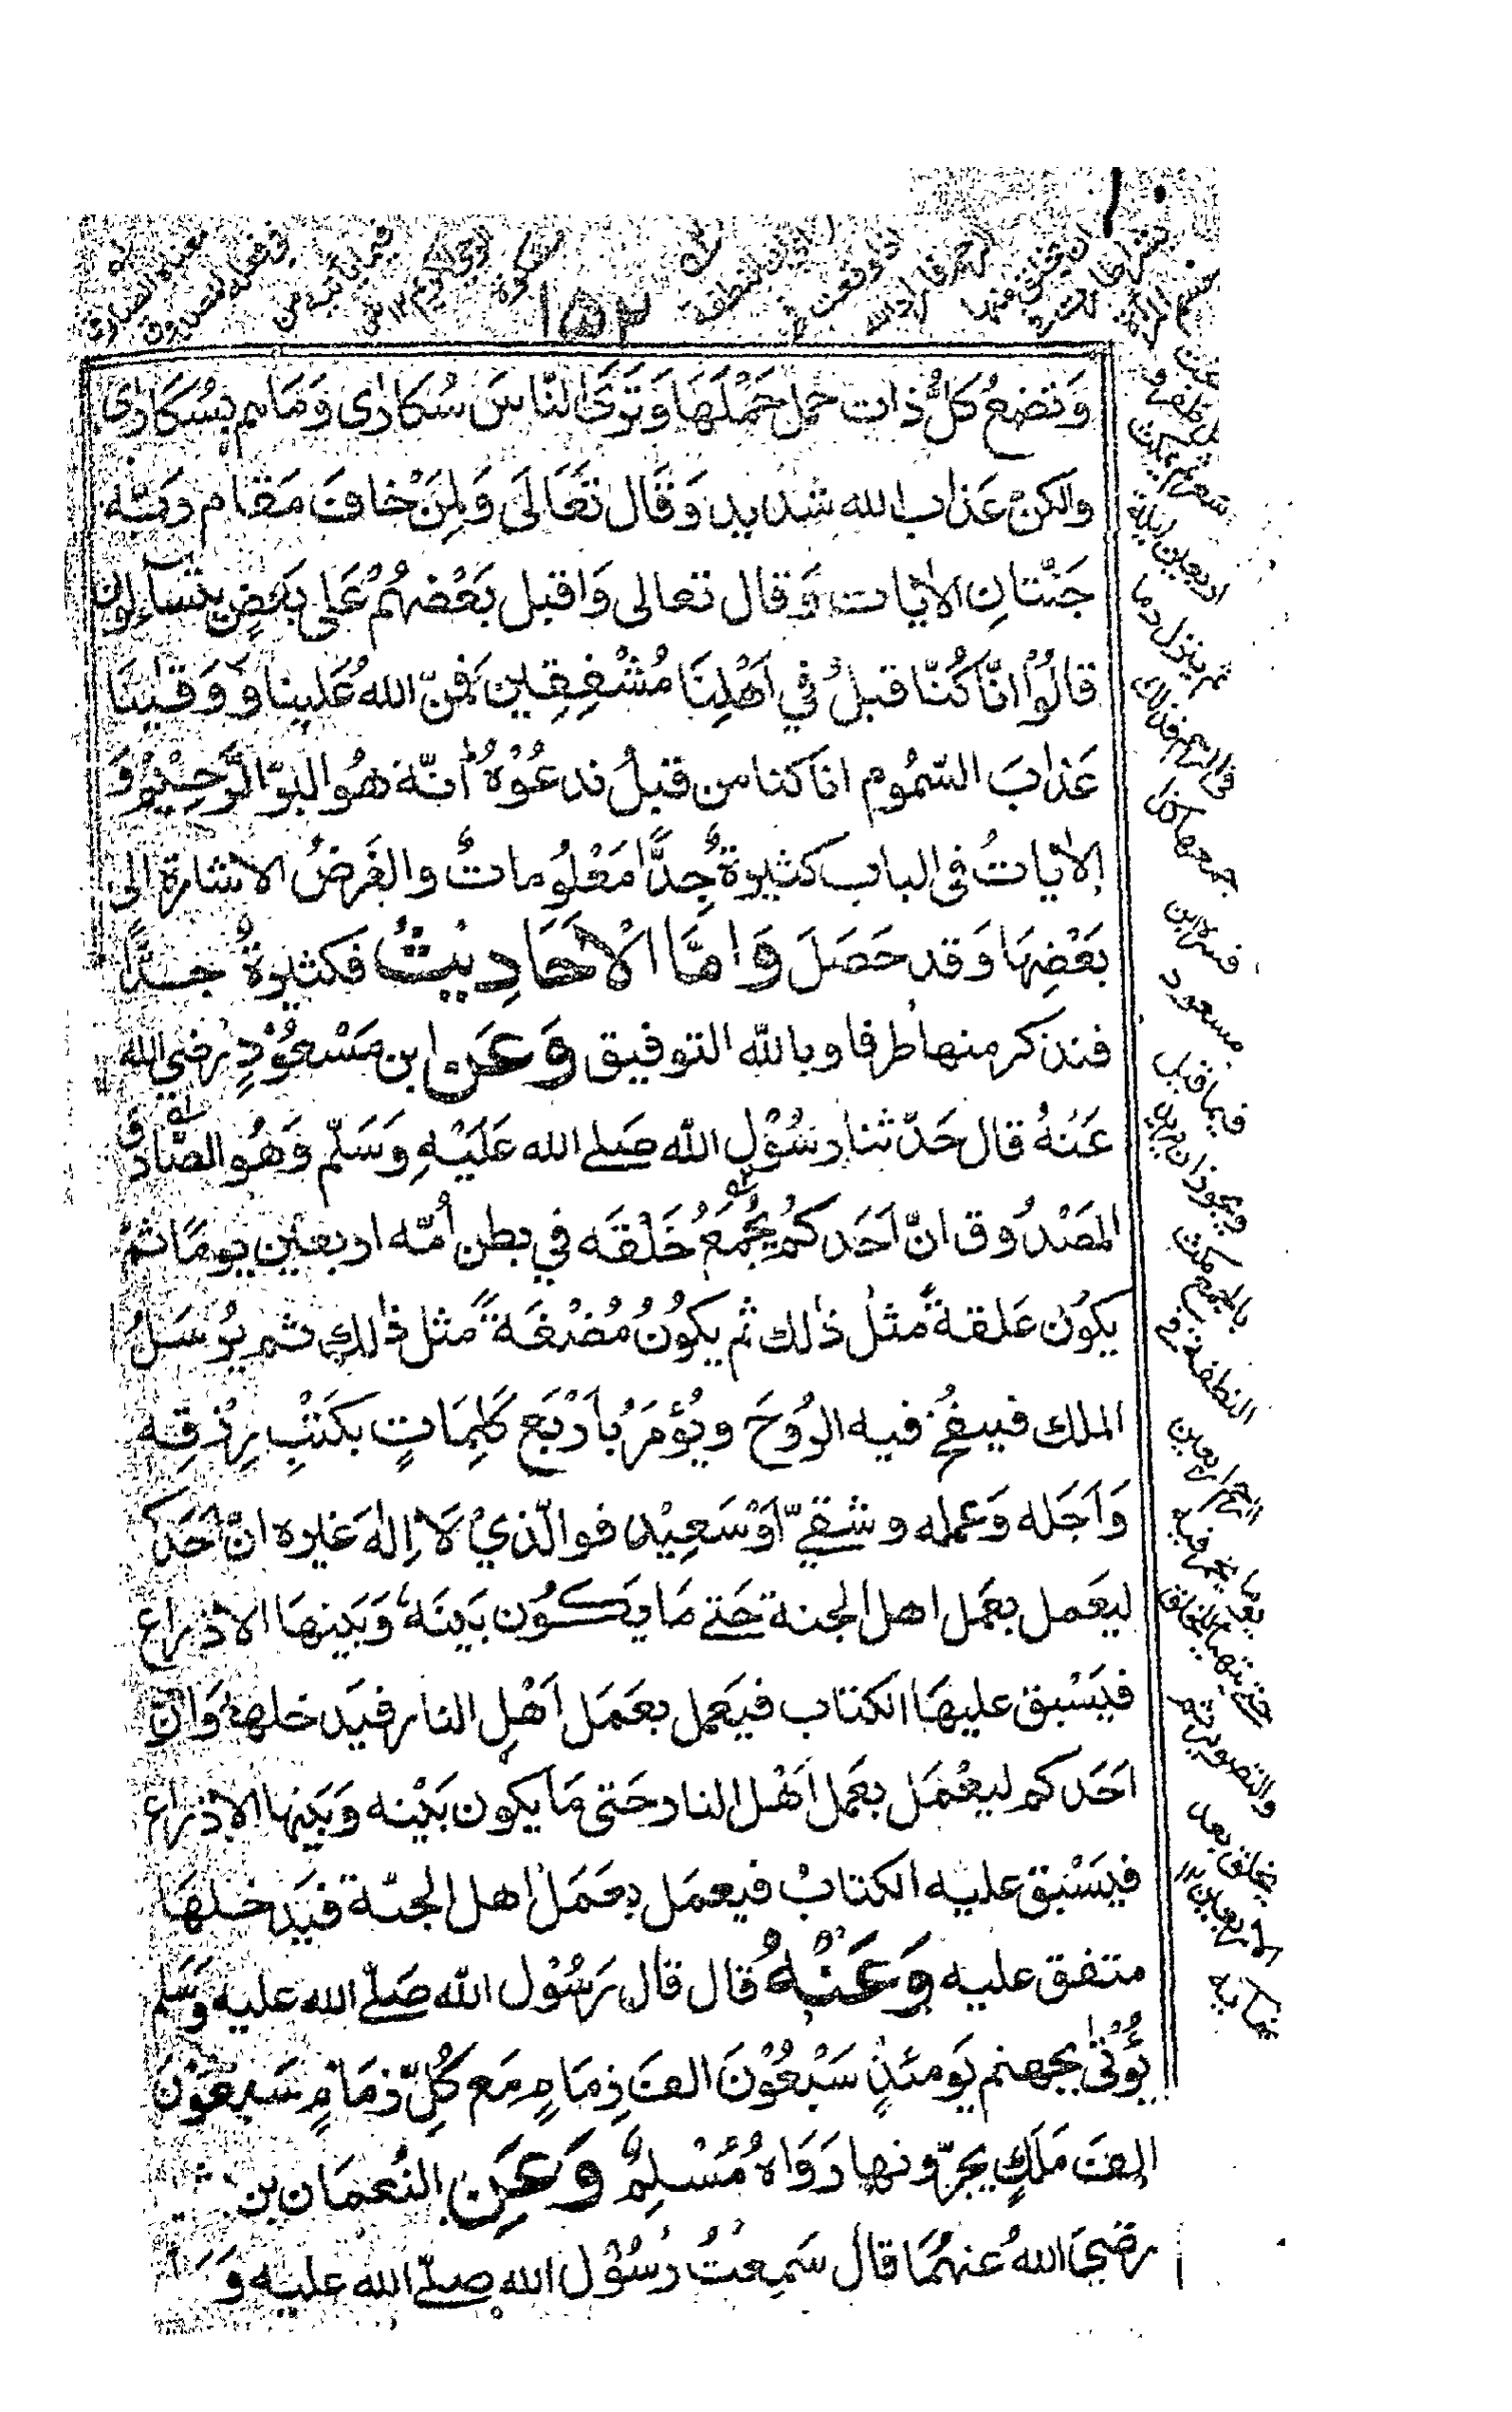 ١٥٢
وَتضعُ كلُّ ذات حمل حَمْلَهَا وَتَرَى النّاسَ سُكارٰى وَمَا هم بِسُكَارٰى
ولكنّ عَذاب الله شديد وَقَال تَعَالَى وَلِمَنْ خافَ مَقام رَبّه
جَنّتانِ الاٰيات وَقال تعالى وَاقبل بَعْضهُمْ عَلى بَعضٍ يتساءلون
قالُوْا انّا كُنّا قبلُ في اَهْلِنَا مُشْفِقِين فَمنّ اللهُ عَلينا وَوَقٰينا
عَذابَ السّمُوم انا كنا من قبلُ ندعُوْهُ اَنّهٗ هُو البَرّ الرَّحِيْمُ وَ
الاٰياتُ فى الباب كثيرةٌ جِدًّا مَعْلُوماتٌ والغَرضُ الاشارة الى
بَعْضِهَا وَقد حَصَلَ وَامَّا الْاَحَادِيْثُ فكثيرةٌ جدًّا
فنذكر منها طرفا وبالله التوفيق وَعَن ابن مَسْعُوْدٍ رضي الله
عَنهُ قال حَدّثنا رسُوْل الله صَلى الله عَلَيْهِ وَسَلّم وَهُو الصّادق
المَصْدُوق انّ اَحَدكمْ يُجْمَعُ خَلْقَه في بطن اُمّه اربعين يومًا ثم
يكوُن عَلقةً مثلَ ذٰلك ثم يكوُنُ مُضْغَةً مثل ذٰلك ثم يُرْسَلُ
الملك فينفخُ فيه الرُوحَ ويُؤمَرُ باَرْبَع كَلِمَاتٍ بكَتْبِ رِزْقِه
وَاَجَله وَعمله وشقيّ اَوْ سَعِيْد فوالّذيْ لَا اِلٰهَ غيره انّ اَحَدكم
ليعَمل بعَمل اهل الجنة حَتى مَا يَكوُن بَينَهٗ وَبَينهَا الا ذراع
فيَسْبق عليهَا الكتاب فيَعمل بعَمَل اَهْلِ النار فيَدخلها وَانّ
اَحَدكم ليعْمَل بعَمل اَهْل النار حَتى مَا يكون بَيْنه وَبَينها الا ذراع
فيَسْبق عليه الكتابُ فيعمَل بعَمَل اهل الجنّة فيَدخلهَا
متفق عليه وَعَنْهُ قال قال رَسُوْل الله صَلّى الله عليه وَسَلم
يُؤْتٰى بجهنم يَومئذٍ سَبْعُوْنَ الفَ زِمَامٍ مَع كُلِّ زمَامٍ سَبعُوْنَ
الفَ مَلَكٍ يجرّونها رَوَاهُ مُسْلِمٌ وَعَن النُعمَان بن
رضيَ اللهُ عنهمَا قال سَمِعتُ رسُوْل الله صلّى الله عليه وَ
اربعين ليلة
ثم ينزل دما
فى الرحم فذلك
جمعها كذا
فسره ابن
مسعود
فيما قيل
ويجوز ان يريد
بالجمع مكث
النطفة فى
الرحم اربعين
والتصوير ثم
يخلق بعد
الاربعين